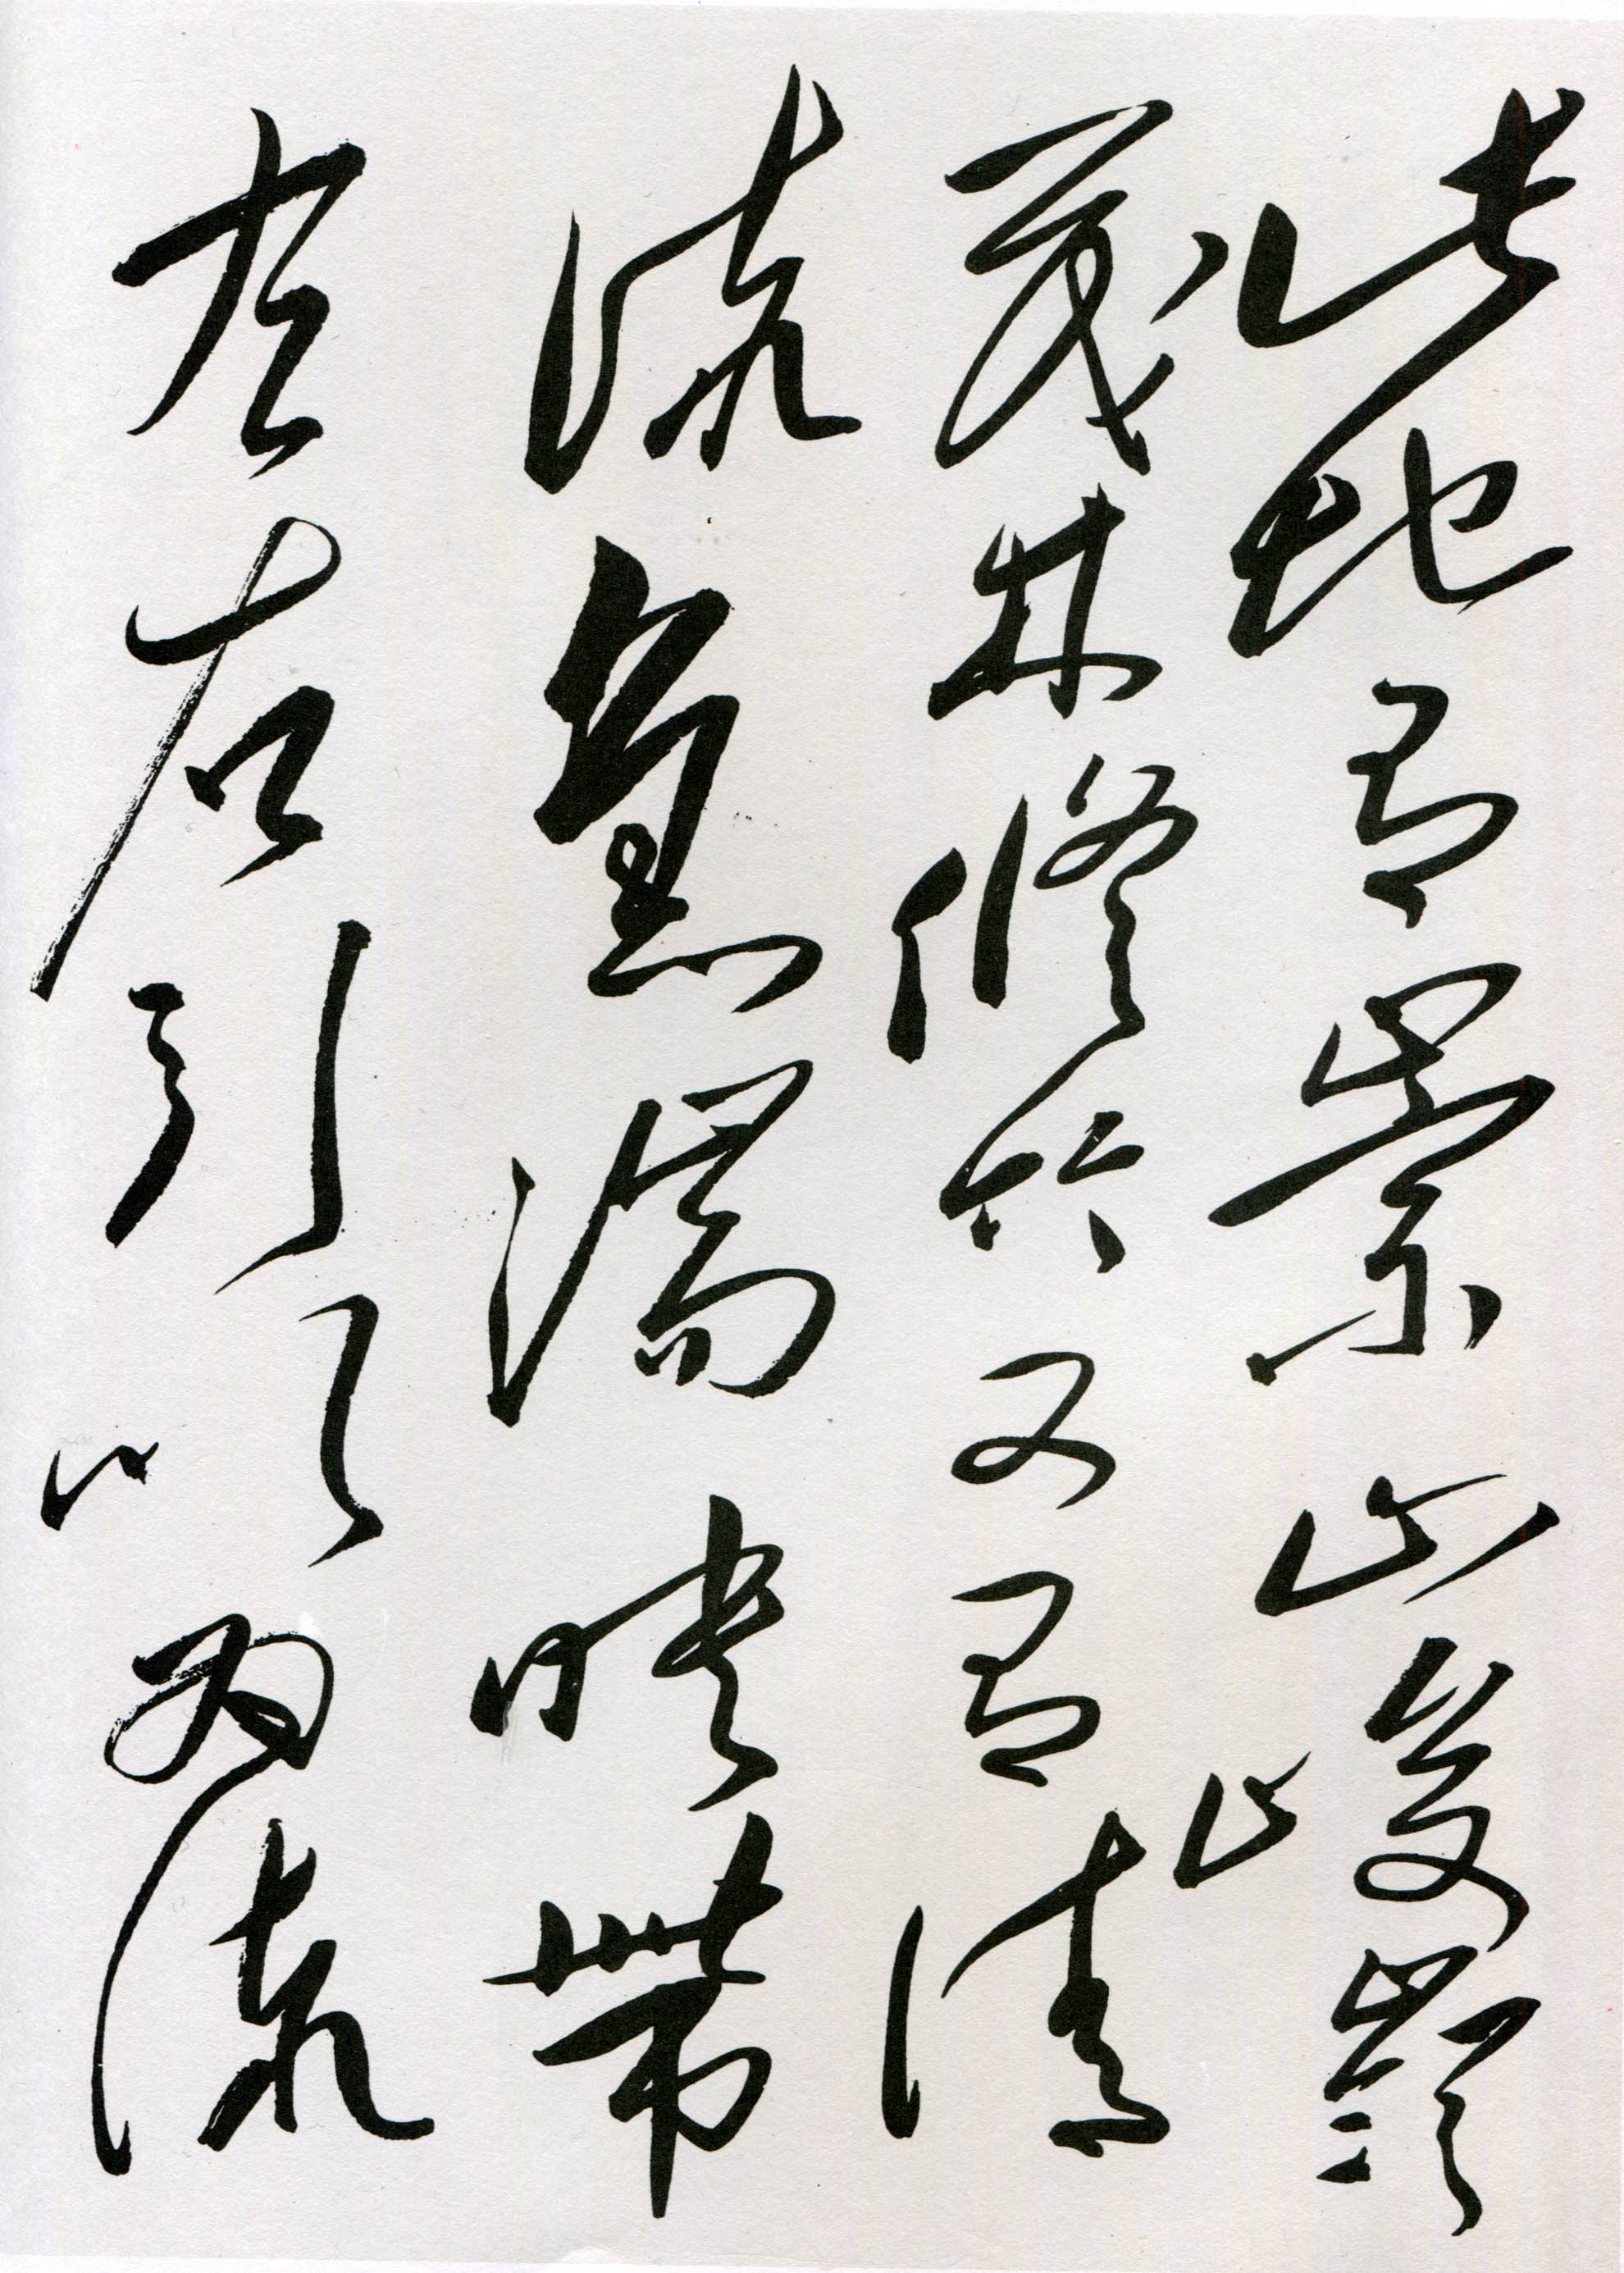 此地有崇山峻嶺
茂林脩竹又有清
流激湍暎帶
左右引以為流